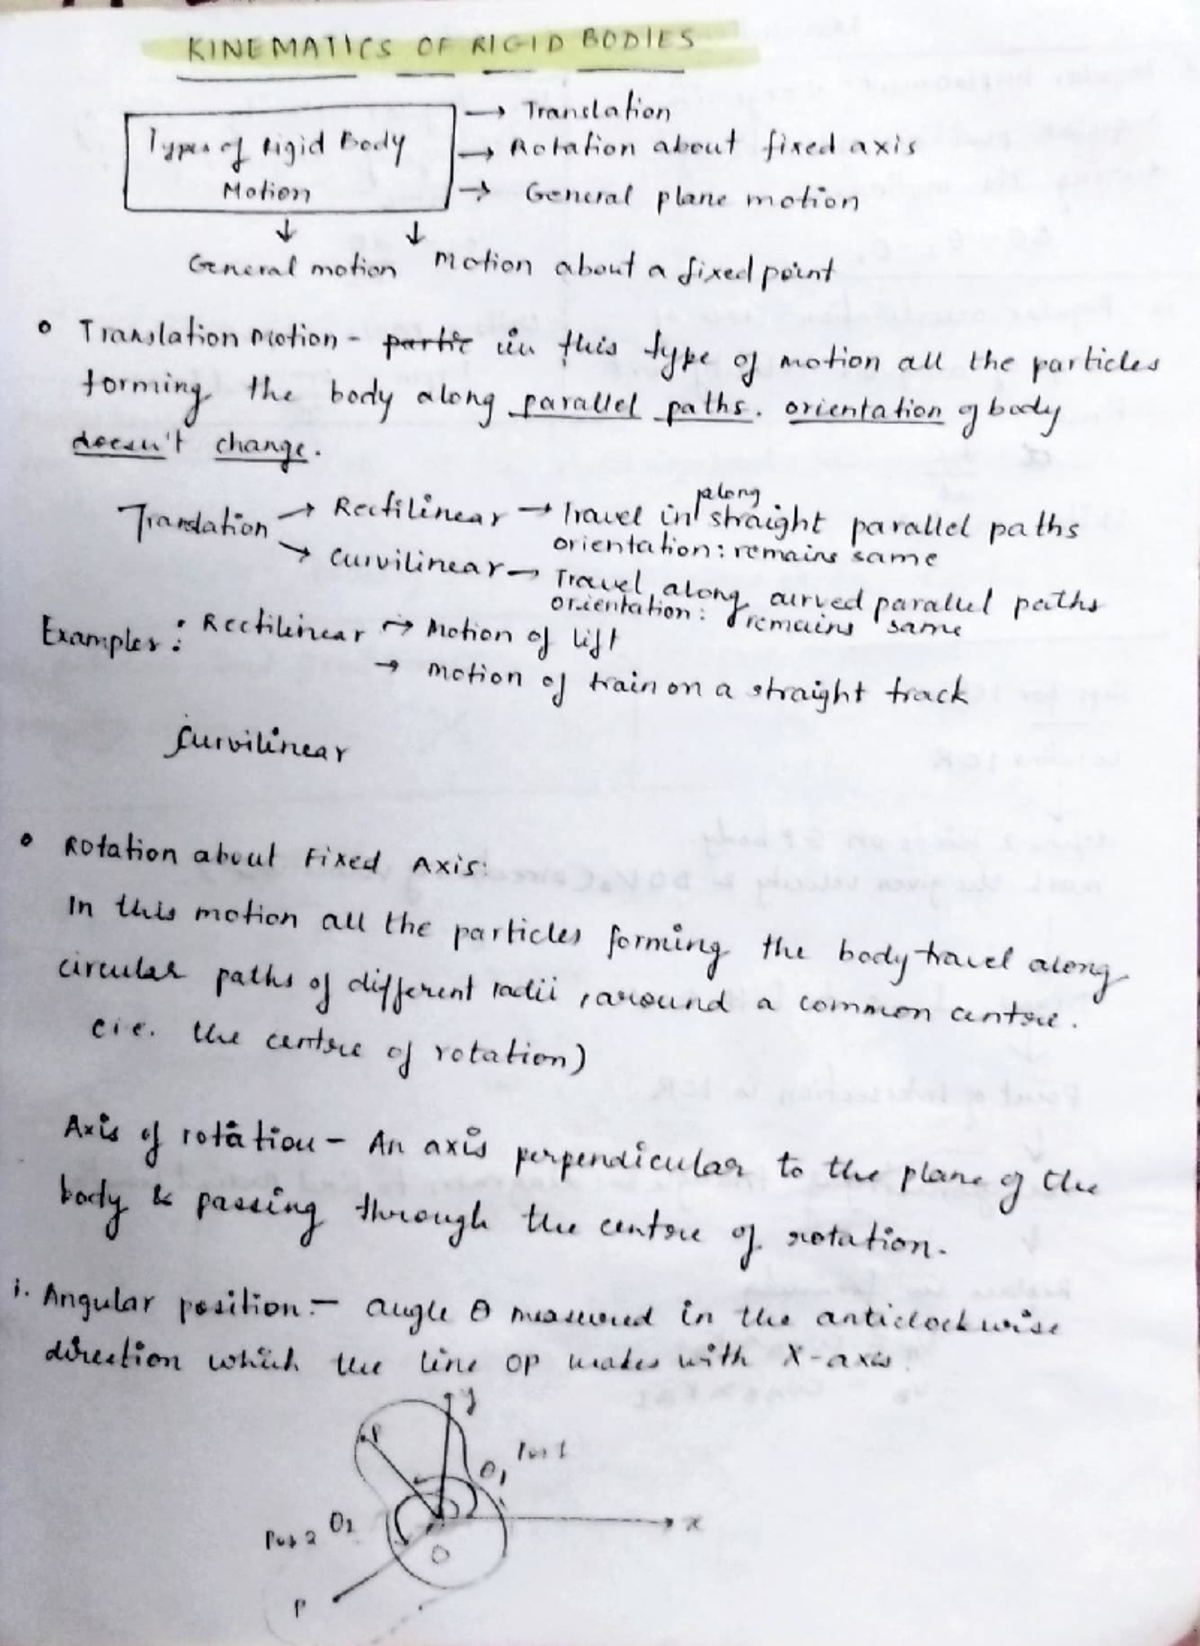 KINEMATICS OF RIGID BODIES
Types of Rigid Body Motion
→ Translation
→ Rotation about fixed axis
→ General plane motion
↓ ↓
General motion Motion about a fixed point
• Translation Motion - partic in this type of motion all the particles
forming the body along parallel paths. orientation of body
doesn't change.
Translation → Rectilinear → Travel in along straight parallel paths
orientation: remains same
→ Curvilinear → Travel along curved parallel paths
orientation: remains same
Examples: Rectilinear → Motion of lift
→ Motion of train on a straight track
Curvilinear
• Rotation about Fixed Axis:
In this motion all the particles forming the body travel along
circular paths of different radii, around a common centre.
(i.e. the centre of rotation)
Axis of rotation - An axis perpendicular to the plane of the
body & passing through the centre of rotation.
i. Angular position:- angle θ measured in the anticlockwise
direction which the line OP makes with X-axis.
y
P
Pos 1
θ1
x
Pos 2 θ2
O
P